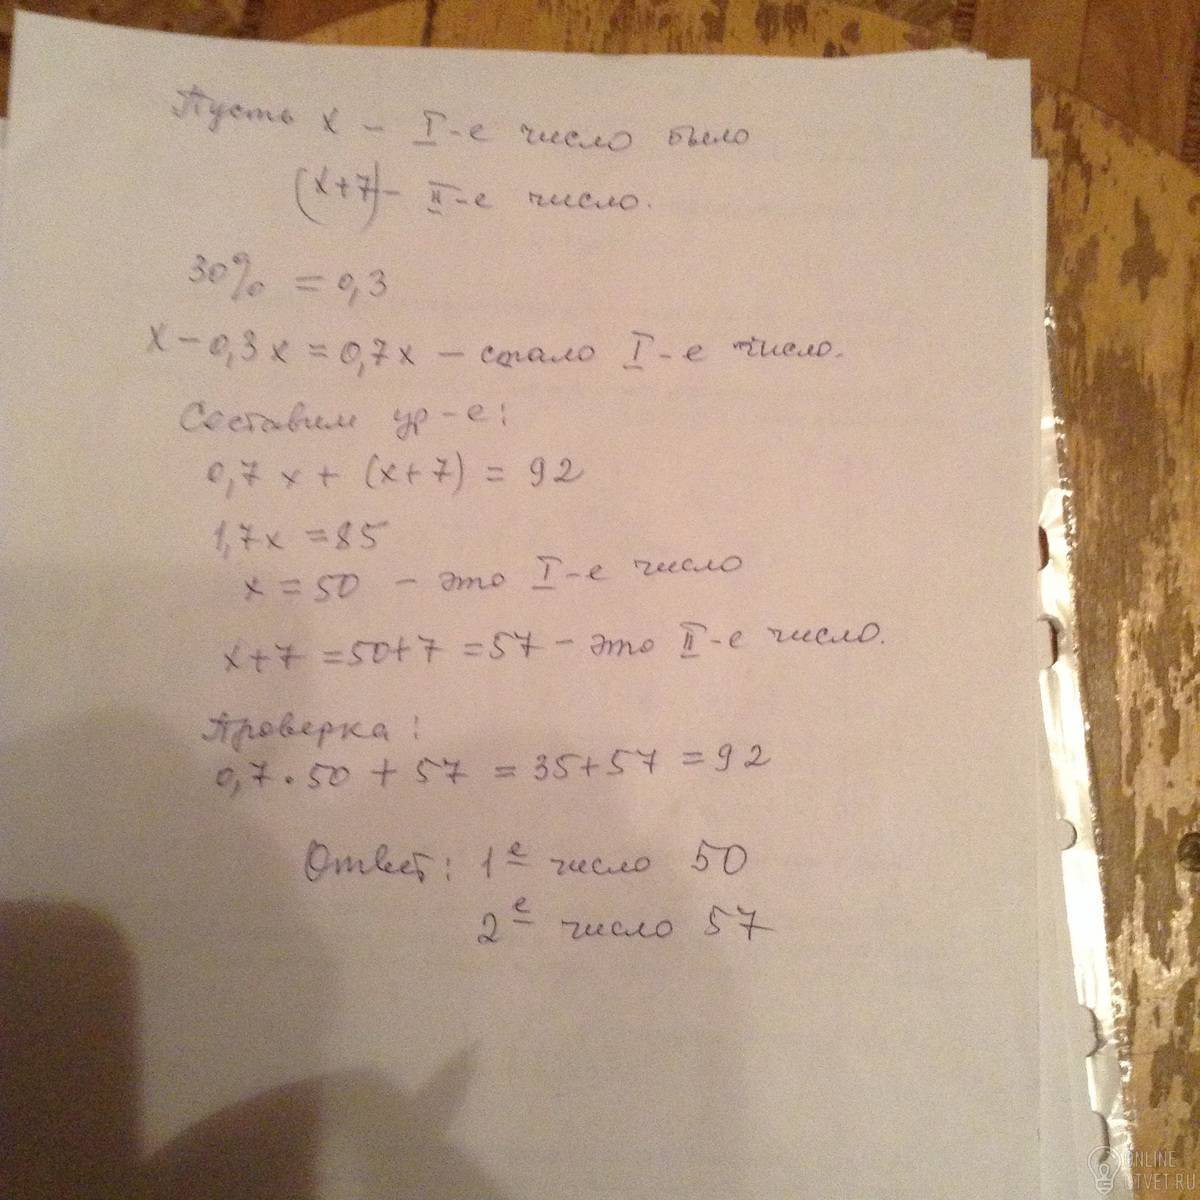 Пусть x – I-е число было
(x+7) – II-е число.
30% = 0,3
x – 0,3x = 0,7x – стало I-е число.
Составим ур-е:
0,7x + (x+7) = 92
1,7x = 85
x = 50 – это I-е число
x+7 = 50+7 = 57 – это II-е число.
Проверка:
0,7·50 + 57 = 35+57 = 92
Ответ: 1е число 50
2е число 57
ONLINE
OTVET.RU